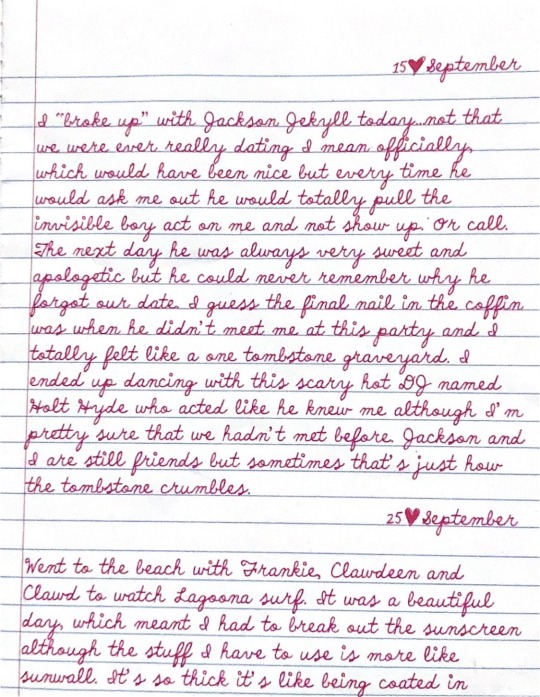 15♥September
I "broke up" with Jackson Jekyll today...not that
we were ever really dating I mean officially,
which would have been nice but every time he
would ask me out he would totally pull the
invisible boy act on me and not show up. Or call.
The next day he was always very sweet and
apologetic but he could never remember why he
forgot our date. I guess the final nail in the coffin
was when he didn't meet me at this party and I
totally felt like a one tombstone graveyard. I
ended up dancing with this scary hot DJ named
Holt Hyde who acted like he knew me although I'm
pretty sure that we hadn't met before. Jackson and
I are still friends but sometimes that's just how
the tombstone crumbles.
25♥September
Went to the beach with Frankie, Clawdeen and
Clawd to watch Lagoona surf. It was a beautiful
day, which meant I had to break out the sunscreen
although the stuff I have to use is more like
sunwall. It's so thick it's like being coated in